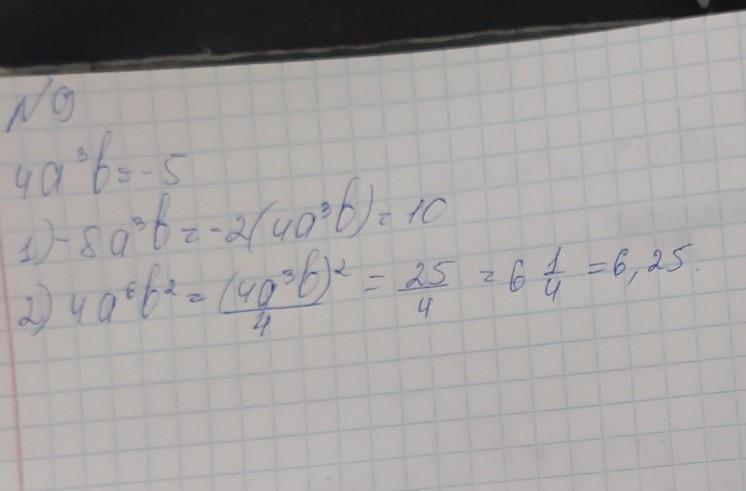 N 9
4a³b = -5
1) -8a³b = -2(4a³b) = 10
2) 4a⁶b² = (4a³b)²/4 = 25/4 = 6 1/4 = 6,25.